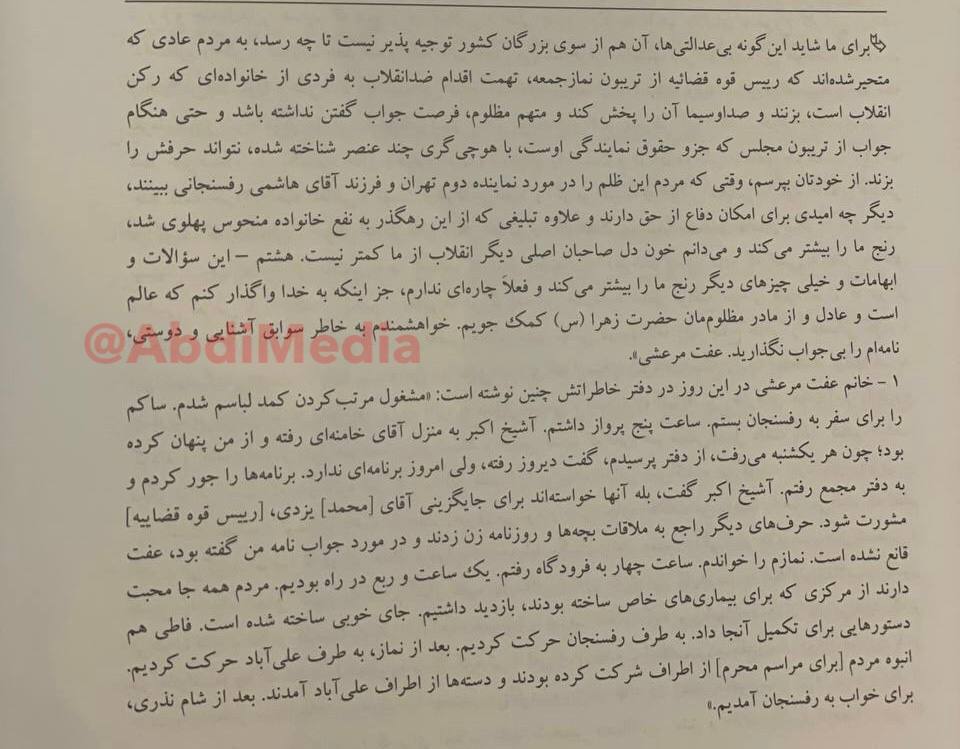 برای ما شاید این‌گونه بی‌عدالتی‌ها، آن هم از سوی بزرگان کشور توجیه پذیر نیست تا چه رسد، به مردم عادی که
متحیرشده‌اند که رییس قوه قضائیه از تریبون نمازجمعه، تهمت اقدام ضدانقلاب به فردی از خانواده‌ای که رکن
انقلاب است، بزنند و صداوسیما آن را پخش کند و متهم مظلوم، فرصت جواب گفتن نداشته باشد و حتی هنگام
جواب از تریبون مجلس که جزو حقوق نمایندگی اوست، با هوچی‌گری چند عنصر شناخته شده، نتواند حرفش را
بزند. از خودتان بپرسم، وقتی که مردم این ظلم را در مورد نماینده دوم تهران و فرزند آقای هاشمی رفسنجانی ببینند،
دیگر چه امیدی برای امکان دفاع از حق دارند و علاوه تبلیغی که از این رهگذر به نفع خانواده منحوس پهلوی شد،
رنج ما را بیشتر می‌کند و می‌دانم خون دل صاحبان اصلی دیگر انقلاب از ما کمتر نیست. هشتم – این سؤالات و
ابهامات و خیلی چیزهای دیگر رنج ما را بیشتر می‌کند و فعلاً چاره‌ای ندارم، جز اینکه به خدا واگذار کنم که عالم
است و عادل و از مادر مظلوم‌مان حضرت زهرا (س) کمک جویم. خواهشمندم به خاطر سوابق آشنایی و دوستی،
نامه‌ام را بی‌جواب نگذارید. عفت مرعشی».
@AbdiMedia
۱ - خانم عفت مرعشی در این روز در دفتر خاطراتش چنین نوشته است: «مشغول مرتب‌کردن کمد لباسم شدم. ساکم
را برای سفر به رفسنجان بستم. ساعت پنج پرواز داشتم. آشیخ اکبر به منزل آقای خامنه‌ای رفته و از من پنهان کرده
بود؛ چون هر یکشنبه می‌رفت، از دفتر پرسیدم، گفت دیروز رفته، ولی امروز برنامه‌ای ندارد. برنامه‌ها را جور کردم و
به دفتر مجمع رفتم. آشیخ اکبر گفت، بله آنها خواسته‌اند برای جایگزینی آقای [محمد] یزدی، [رییس قوه قضاییه]
مشورت شود. حرف‌های دیگر راجع به ملاقات بچه‌ها و روزنامه زن زدند و در مورد جواب نامه من گفته بود، عفت
قانع نشده است. نمازم را خواندم. ساعت چهار به فرودگاه رفتم. یک ساعت و ربع در راه بودیم. مردم همه جا محبت
دارند از مرکزی که برای بیماری‌های خاص ساخته بودند، بازدید داشتیم. جای خوبی ساخته شده است. فاطی هم
دستورهایی برای تکمیل آنجا داد. به طرف رفسنجان حرکت کردیم. بعد از نماز، به طرف علی‌آباد حرکت کردیم.
انبوه مردم [برای مراسم محرم] از اطراف شرکت کرده بودند و دسته‌ها از اطراف علی‌آباد آمدند. بعد از شام نذری،
برای خواب به رفسنجان آمدیم.»